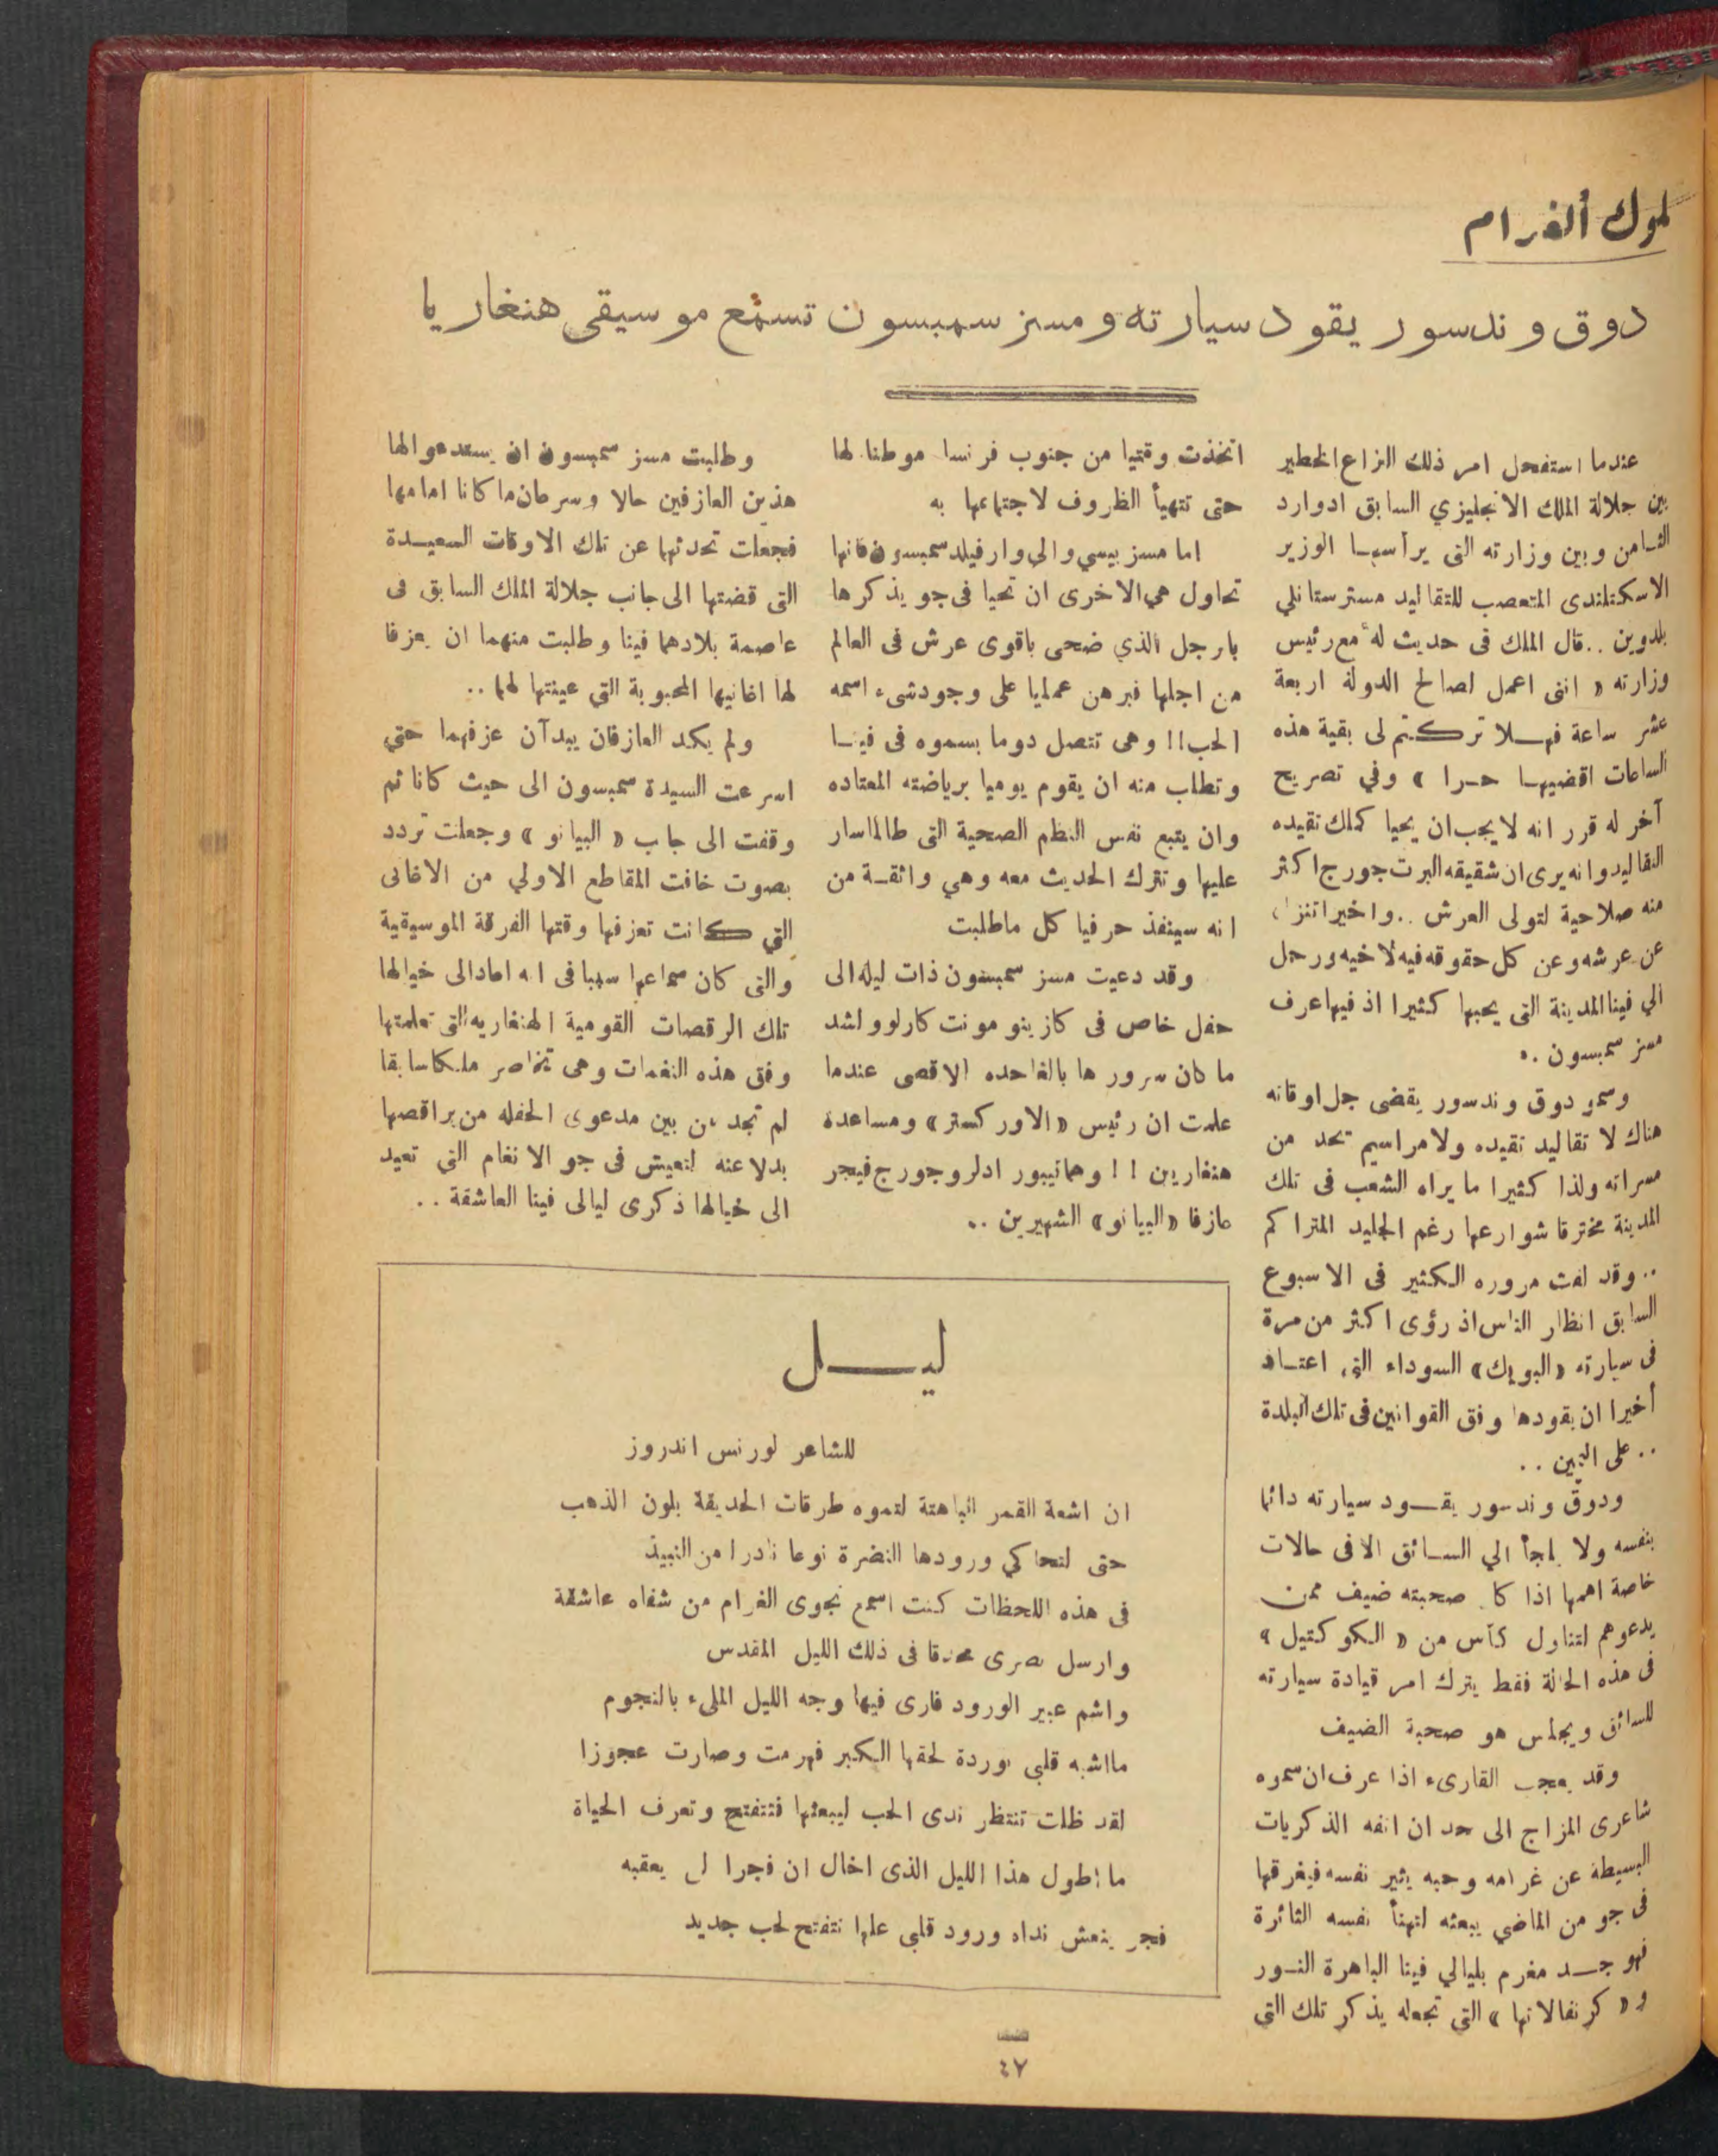 ملوك ألغرام
دوق وندسور يقود سيارته ومسز سمبسون تستمع موسيقى هنغاريا
عندما استفحل امر ذلك النزاع الخطير
بين جلالة الملك الانجليزي السابق ادوارد
الثـامن وبين وزارته التى يرأسهـا الوزير
الاسكتلندى المتعصب للتقاليد مسترستانلي
بلدوين ..قال الملك فى حديث له مع رئيس
وزارته « اننى اعمل لصالح الدولة اربعة
عشر ساعة فهــلا تركتم لى بقية هذه
الساعات اقضيهـا حـرا » وفي تصريح
آخر له قرر انه لا يجب ان يحيا كملك تقيده
التقاليد وانه يرى ان شقيقه البرت جورج اكثر
منه صلاحية لتولى العرش ..واخيرا تنزل
عن عرشه وعن كل حقوقه فيه لاخيه ورحل
الي فينا المدينة التى يحبها كثيرا اذ فيها عرف
مسز سمبسون ..
وسمو دوق وندسور يقضى جل اوقاته
هناك لا تقاليد تقيده ولا مراسيم تحد من
مسراته ولذا كثيرا ما يراه الشعب فى تلك
المدينة مخترقا شوارعها رغم الجليد المتراكم
.. وقد لفت مروره الكثير فى الاسبوع
السابق انظار الناس اذ رؤى اكثر من مرة
فى سيارته «البويك» السوداء التى اعتـاد
أخيرا ان يقودها وفق القوانين فى تلك البلدة
.. على اليمين ..
ودوق وندسور يقــود سيارته دائما
بنفسه ولا يلجأ الي السـائق الا فى حالات
خاصة اهمها اذا كا صحبته ضيف ممن
يدعوهم لتناول كأس من « الكوكتيل »
فى هذه الحالة فقط يترك امر قيادة سيارته
للسائق ويجلس هو صحبة الضيف
وقد يعجب القارىء اذا عرف ان سموه
شاعرى المزاج الى حد ان اتفه الذكريات
البسيطة عن غرامه وحبه يثير نفسه فيغرقها
فى جو من الماضي يبعثه لتهنأ نفسه الثائرة
فهو جــد مغرم بليالي فينا الباهرة النـور
و« كرنفالاتها » التى تجعله يذكر تلك التى
اتخذت وقتيا من جنوب فرنسا موطنا لها
حتى تتهيأ الظروف لاجتماعها به
اما مسز بيسي والي وارفيلد سمبسون فانها
تحاول هى الاخرى ان تحيا فى جو يذكرها
بارجل الذي ضحى باقوى عرش فى العالم
من اجلها فبرهن عمليا على وجود شىء اسمه
الحب!! وهى تتصل دوما بسموه فى فينـا
وتطلب منه ان يقوم يوميا برياضته المعتاده
وان يتبع نفس النظم الصحية التى طالما سار
عليها وتترك الحديث معه وهي واثقـة من
انه سينفذ حرفيا كل ماطلبت
وقد دعيت مسز سمبسون ذات ليله الى
حفل خاص فى كازينو مونت كارلو ولشد
ما كان سرورها بالغا حده الاقصى عندما
علمت ان رئيس «الاوركستر» ومساعدة
هنغاريين !! وهما تيبور ادلر وجورج فيجر
عازفا «البيانو» الشهيرين ..
وطلبت مسز سمبسون ان يستدعوا لها
هذين العازفين حالا وسرعان ما كانا امامها
فجعلت تحدثهما عن تلك الاوقات السعيـدة
التى قضتها الى جانب جلالة الملك السابق فى
عاصمة بلادهما فينا وطلبت منهما ان يعزفا
لها اغانيها المحبوبة التي عينتها لهما ..
ولم يكد العازفان يبدآن عزفهما حتي
اسرعت السيدة سمبسون الى حيث كانا ثم
وقفت الى جاب « البيانو » وجعلت تردد
بصوت خافت المقاطع الاولي من الاغانى
التي كانت تعزفها وقتها الفرقة الموسيقية
والتى كان سماعها سببا فى انه اعاد الى خيالها
تلك الرقصات القومية الهنغاريه التى تعلمتها
وفق هذه النغمات وهى تخاصر ملكا سابقا
لم تجد من بين مدعوى الحفله من يراقصها
بدلا عنه لتعيش فى جو الانغام التي تعيد
الى خيالها ذكرى ليالى فينا العاشقة ..
ليــــل
للشاعر لورنس اندروز
ان اشعة القمر الباهتة لتموه طرقات الحديقة بلون الذهب
حتى لتحاكي ورودها النضرة نوعا نادرا من النبيذ
فى هذه اللحظات كنت اسمع نجوى الغرام من شفاه عاشقة
وارسل بصرى محدقا فى ذلك الليل المقدس
واشم عبير الورود فارى فيها وجه الليل الملىء بالنجوم
مااشبه قلبى بوردة لحقها الكبر فهرمت وصارت عجوزا
لقد ظلت تنتظر ندى الحب ليبعثها فتتفتح وتعرف الحياة
ما اطول هذا الليل الذى اخال ان فجرا لن يعقبه
فجر ينعش نداه ورود قلبى علها تتفتح لحب جديد
٤٧